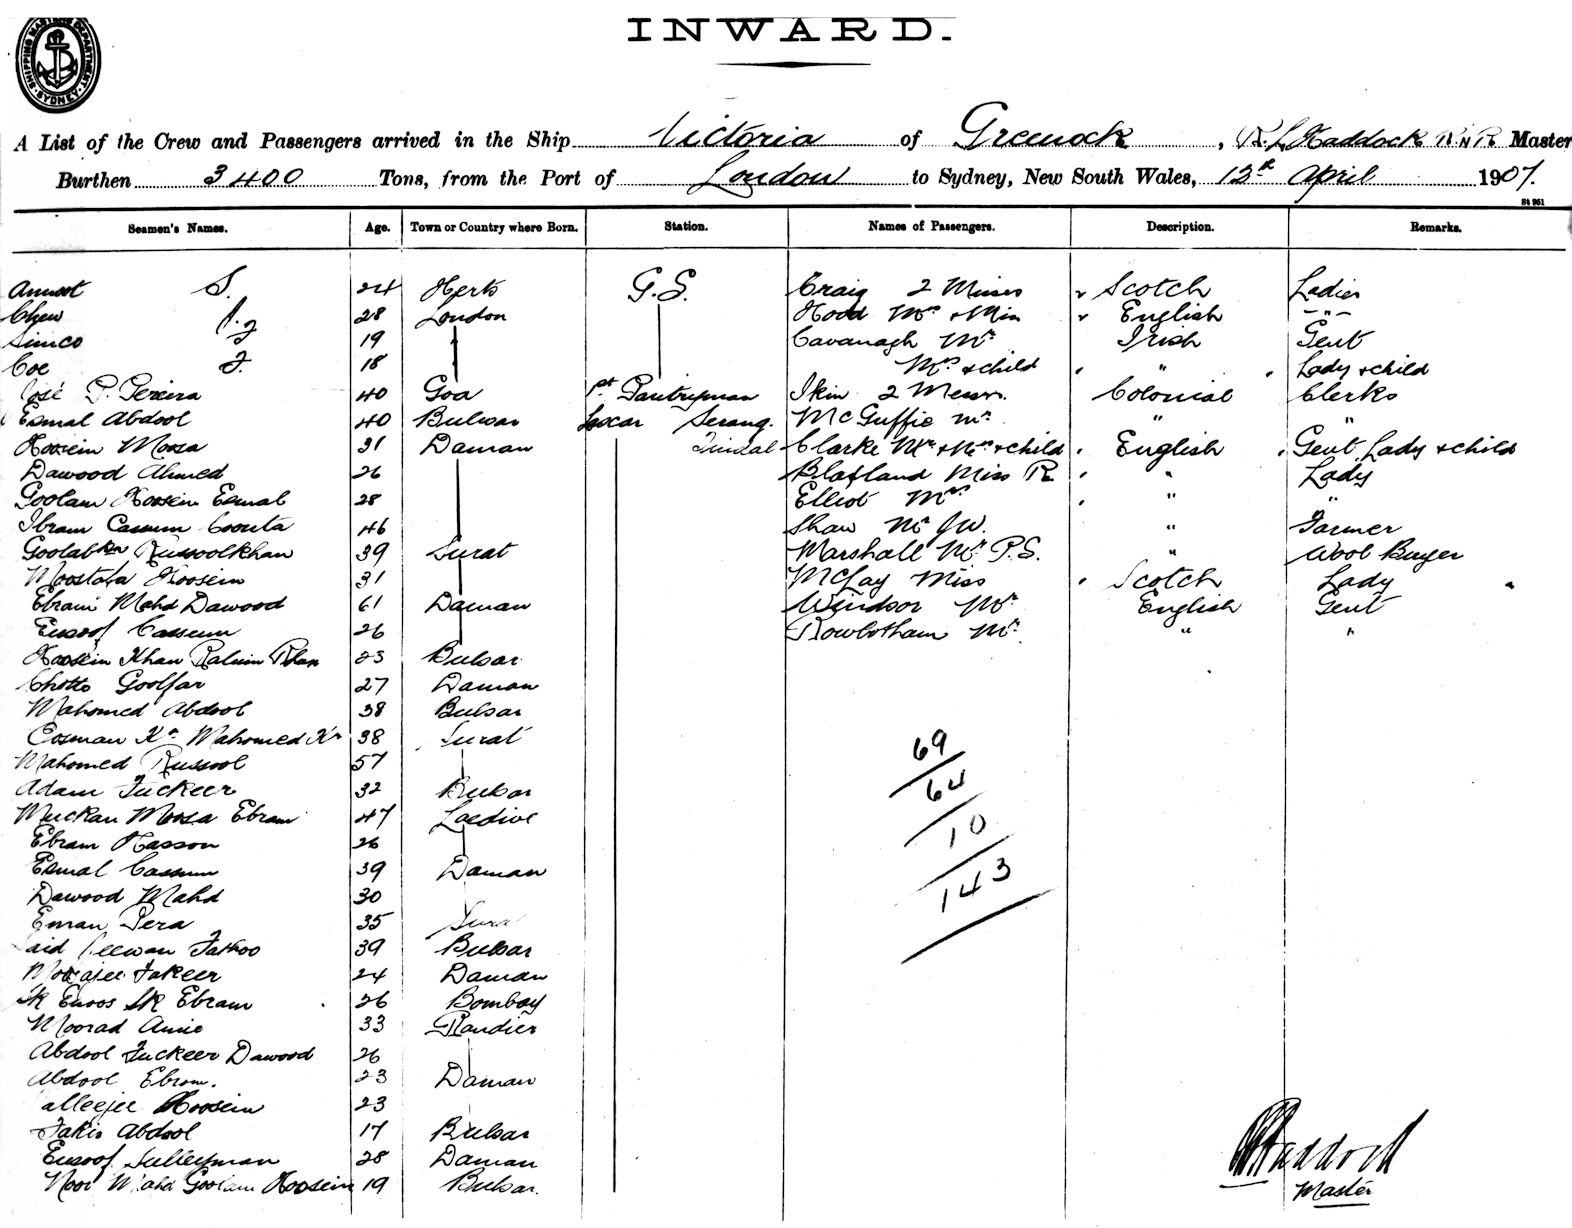 INWARD.
SHIPPING MASTERS DEPARTMENT SYDNEY
A List of the Crew and Passengers arrived in the Ship Victoria of Greenock, R. L Haddock R N R Master
Burthen 3400 Tons, from the Port of London to Sydney, New South Wales, 13th April 1907.
St 951
Seamen's Names. Age. Town or Country where Born. Station. Names of Passengers. Description. Remarks.
S. 24 Herts G.S. Craig 2 Misses Scotch Ladies
Chew 28 London Hood Mrs & Miss English "
Simco 19 Cavanagh Mr Irish Gent
Coe F. 18 Mrs & child " Lady & child
José P. Pereira 40 Goa 1st Pantryman Ikin 2 Messrs. Colonial Clerks
Esmal Abdool 40 Bulsar Lascar Serang. McGuffie Mr " "
Hoosein Moosa 31 Daman Tindal Clarke Mr & Mrs & child English Gent Lady & child
Dawood Ahmed 26 Blatland Miss R " Lady
Goolam Hoosein Esmal 28 Elliot Mrs " "
Ibram Cassum 46 Shaw Mr J W. " Farmer
Russoolkhan 39 Surat Marshall Mr P.S. " Wool Buyer
Moostafa Hoosein 31 McLay Miss Scotch Lady
Ebram Mahd Dawood 61 Daman Windsor Mr English Gent
Eusoof Cassum 26 Rowbotham Mr " "
Hoosein Khan 23 Bulsar
Chotto Goolfar 27 Daman
Mahomed Abdool 38 Bulsar
Cosman Kn Mahomed Kn 38 Surat
Mahomed Russool 57
Adam Fuckeer 32 Bulsar
Muckan Moosa Ebram 47 Lacdive
Ebram Hasson 26
Esmal Cassum 39 Daman
Dawood Mahd 30
Eman Pera 35
39 Bulsar
Fakeer 24 Daman
Sk Enoos Sk Ebram 26 Bombay
Moorad Amie 33 Randier
Abdool Fuckeer Dawood 26
Abdool Ebram. 23 Daman
Hoosein 23
Fakir Abdool 17 Bulsar
Eusoof Sulleyman 28 Daman
Noor Mahd Goolam Hoosein 19 Bulsar.
69
64
10
143
Haddock
Master